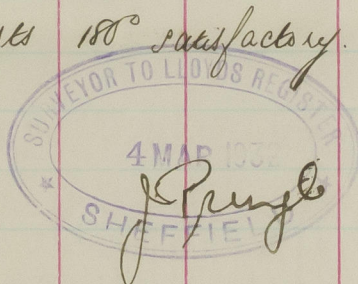 180° satisfactory.
SURVEYOR TO LLOYDS REGISTER
4 MAR 1932
J Pringle
SHEFFIELD